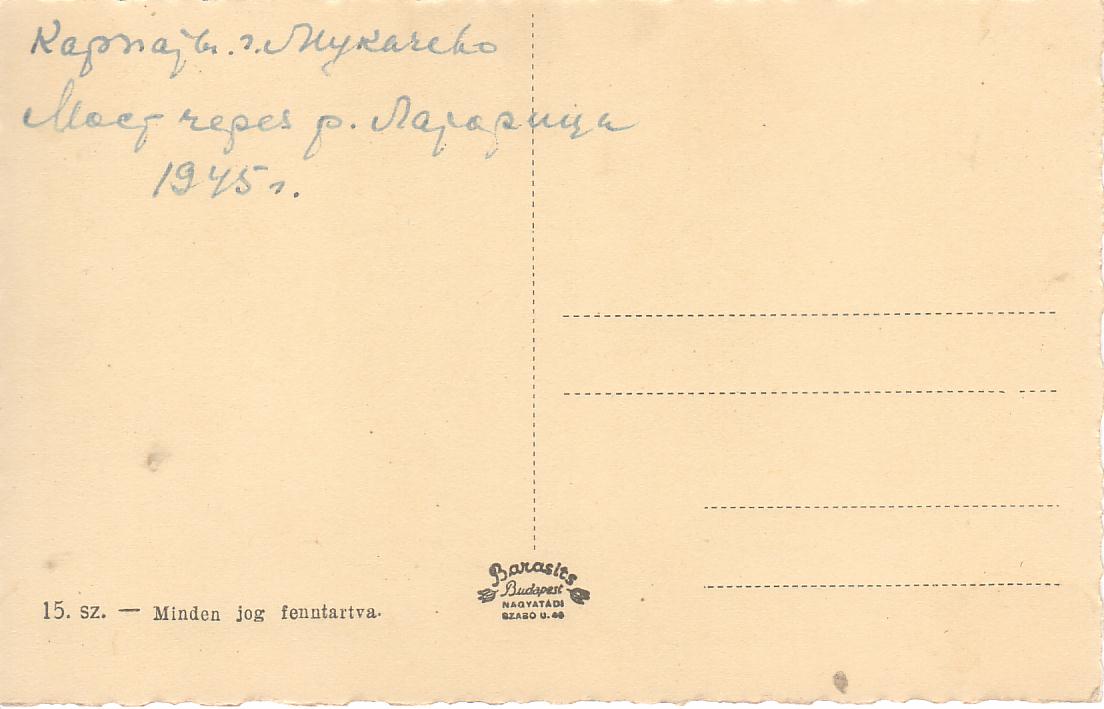 Карпаты. г. Мукачево
Мост через р. Латорица
1945 г.
15. sz. — Minden jog fenntartva.
Barasits
Budapest
NAGYATÁDI
SZABÓ U. 46